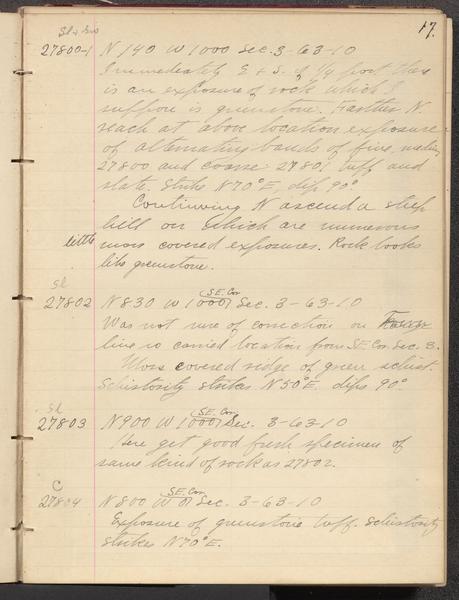 17.
27800-1 N 140 W 1000 Sec. 3-63-10
Immediately E & S. of 1/4 post there
is an exposure of rock which I
suppose is greenstone. Farther N.
reach at above location exposure
of alternating bands of fine, medium
27800 and coarse 27801 tuff and
slate. Strike N 70° E, dip 90°
Continuing N ascend a steep
hill on which are numerous
little moss covered exposures. Rock looks
like greenstone.
sl
27802 N 830 W 1000 S.E. Cor. Sec. 3-63-10
Was not sure of correction on
line so carried location from S.E. Cor. Sec. 3.
Moss covered ridge of green schist.
Schistosity strikes N 50° E. dips 90°
sl
27803 N 900 W 1000 S.E. Cor. Sec. 3-63-10
Here get good fresh specimen of
same kind of rock as 27802.
C
27804 N 800 W 0 S.E. Cor. Sec. 3-63-10
Exposure of greenstone tuff. Schistosity
strikes N 70° E.